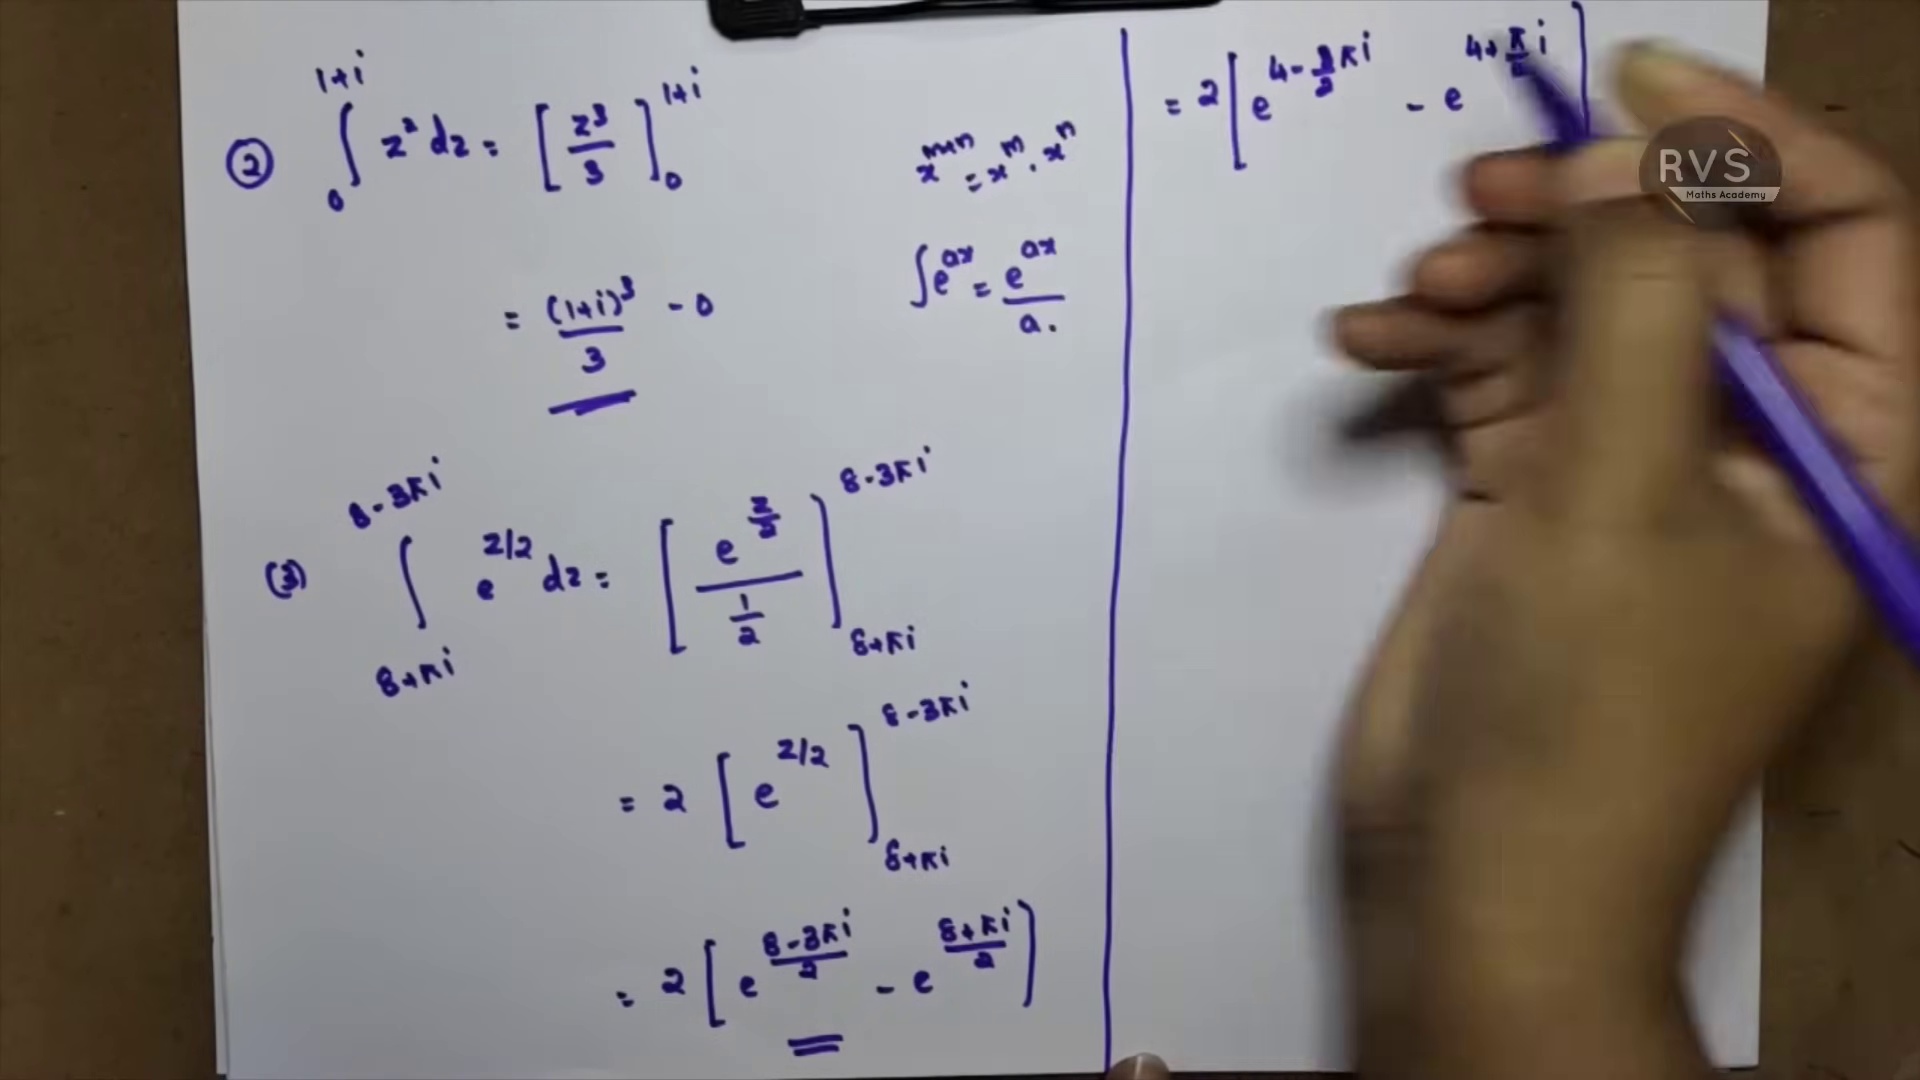 ② ∫₀^{1+i} z² dz = [z³/3]₀^{1+i}
= (1+i)³/3 - 0
x^{m+n} = x^m . x^n
∫e^{ax} = e^{ax}/a.
(3) ∫_{8+πi}^{8-3πi} e^{z/2} dz = [e^{z/2}/(1/2)]_{8+πi}^{8-3πi}
= 2 [e^{z/2}]_{8+πi}^{8-3πi}
= 2 [e^{(8-3πi)/2} - e^{(8+πi)/2}]
= 2 [e^{4-(3/2)πi} - e^{4+(π/2)i}]
RVS
Maths Academy